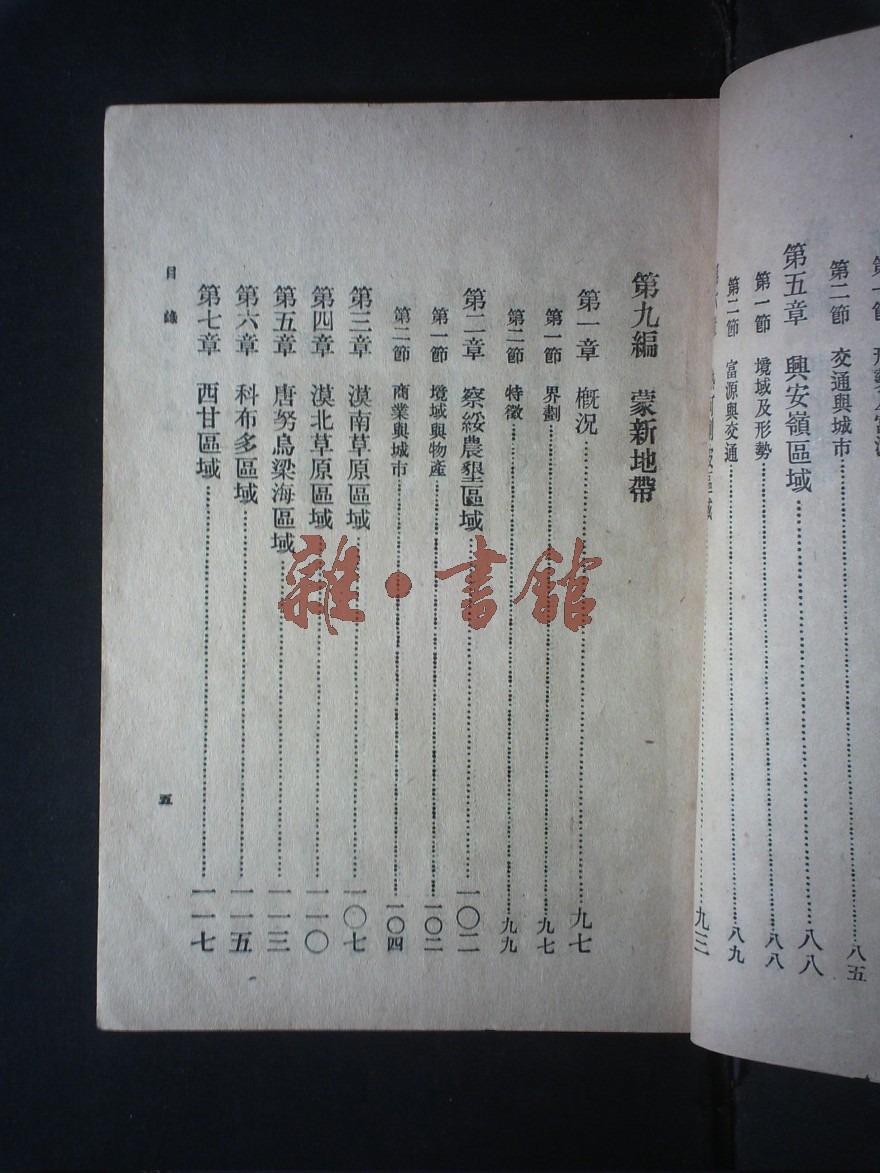 形勢
第二節 交通與城市……八五
第五章 興安嶺區域……八八
第一節 境域及形勢……八八
第二節 富源與交通……八九
區域……九三
第九編 蒙新地帶
第一章 槪況……九七
第一節 界劃……九七
第二節 特徵……九九
第二章 察綏農墾區域……一〇二
第一節 境域與物產……一〇二
第二節 商業與城市……一〇四
第三章 漠南草原區域……一〇七
第四章 漠北草原區域……一一〇
第五章 唐努烏梁海區域……一一三
第六章 科布多區域……一一五
第七章 西甘區域……一一七
目錄
五
雜·書館